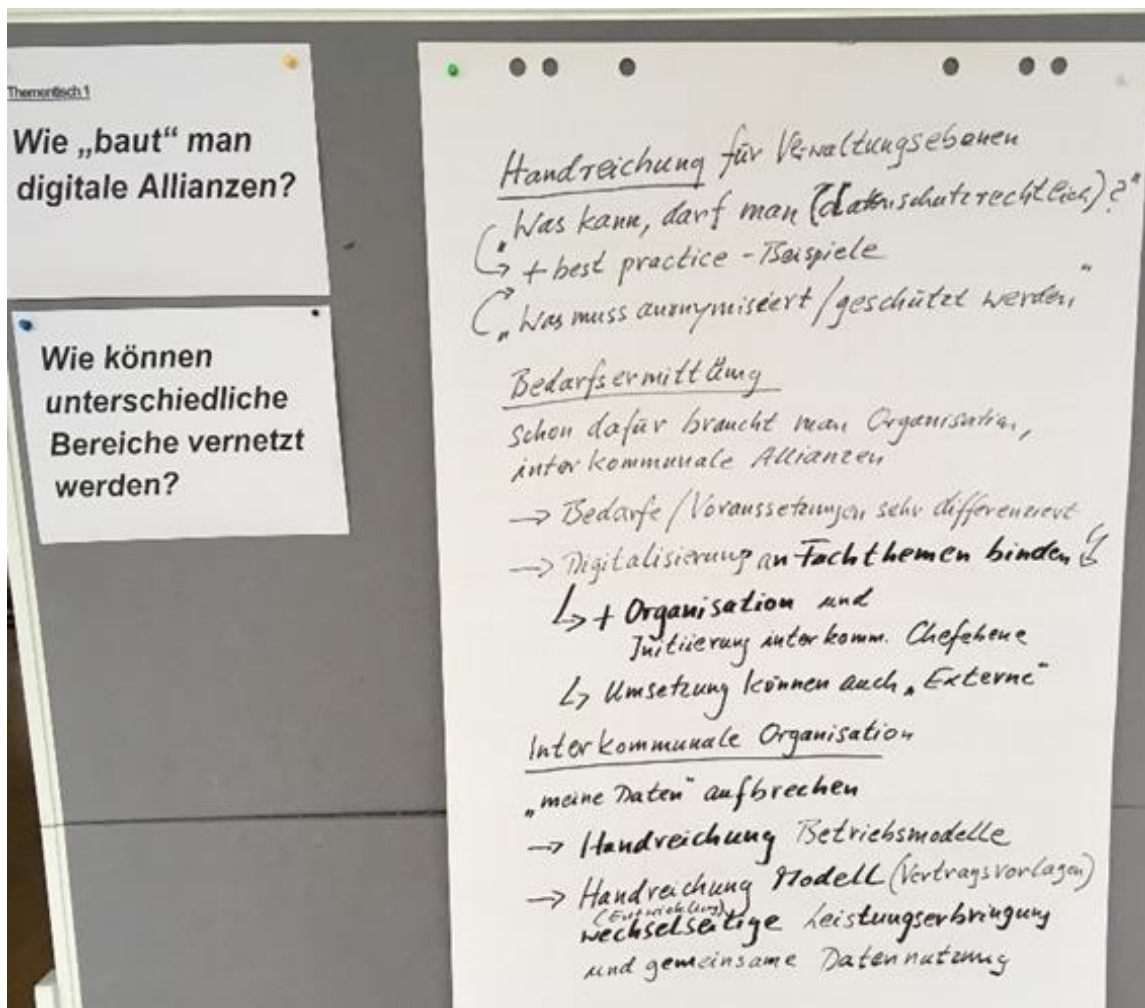 Thementisch 1
Wie „baut“ man
digitale Allianzen?
Wie können
unterschiedliche
Bereiche vernetzt
werden?
Handreichung für Verwaltungsebenen
„Was kann, darf man (datenschutzrechtlich)?“
+ best practice - Beispiele
„Was muss anonymisiert / geschützt werden“
Bedarfsermittlung
schon dafür braucht man Organisation,
interkommunale Allianzen
→ Bedarfe / Voraussetzungen sehr differenziert
→ Digitalisierung an Fachthemen binden
↳ + Organisation und
Initiierung interkomm. Chefebene
↳ Umsetzung können auch „Externe“
Interkommunale Organisation
„meine Daten“ aufbrechen
→ Handreichung Betriebsmodelle
→ Handreichung Modell (Vertragsvorlagen)
(Entwicklung)
wechselseitige Leistungserbringung
und gemeinsame Datennutzung